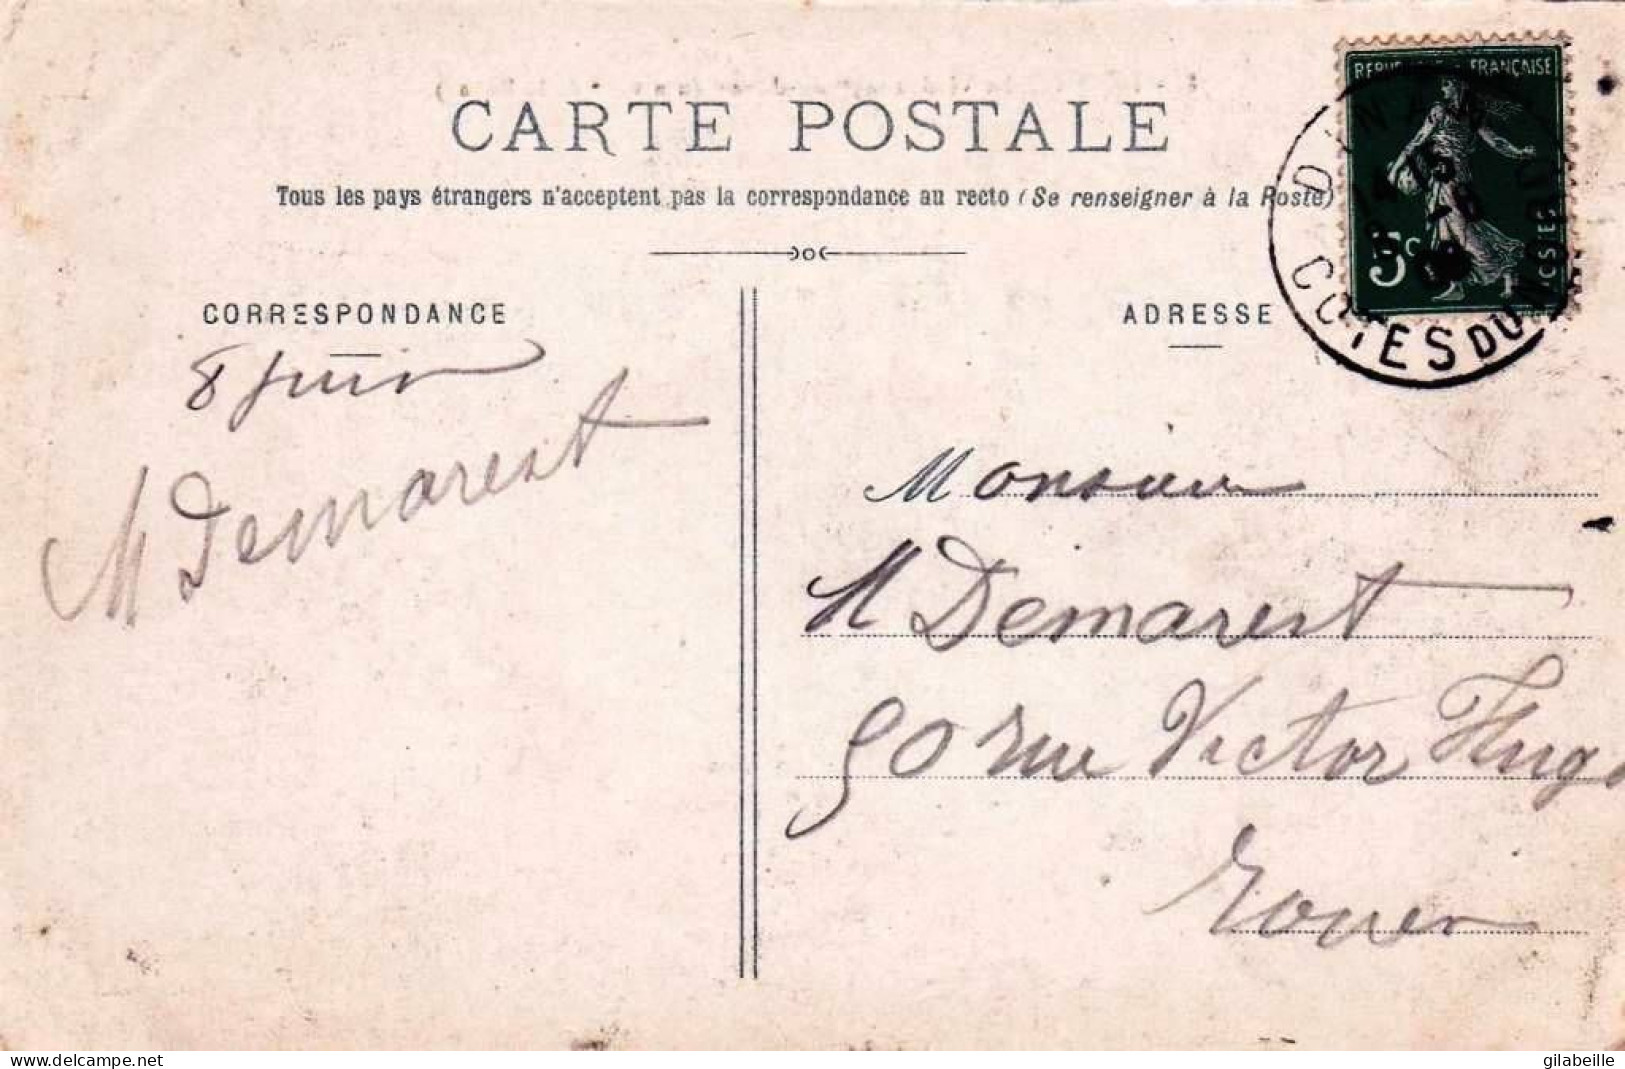 CARTE POSTALE
Tous les pays étrangers n'acceptent pas la correspondance au recto (Se renseigner à la Poste)
REPUBLIQUE FRANÇAISE
5c
POSTES
DINAN
COTES DU NORD
CORRESPONDANCE
8 juin
M Demarest
ADRESSE
Monsieur
M Demarest
50 rue Victor Hugo
Rouen
www.delcampe.net
gilabeille